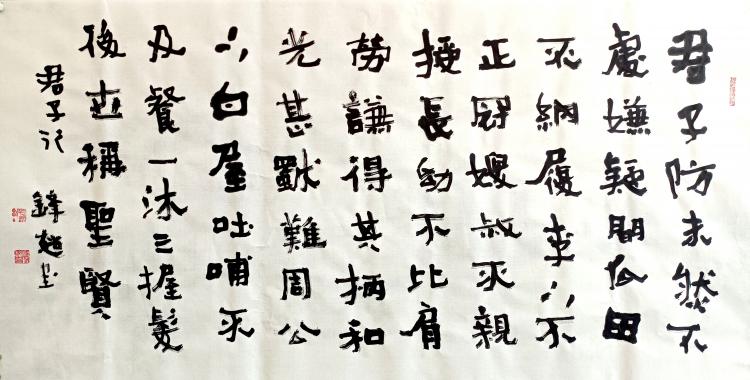 君子防未然不
處嫌疑間瓜田
不納履李下不
正冠嫂叔不親
授長幼不比肩
勞謙得其柄和
光甚獨難周公
下白屋吐哺不
及餐一沐三握髮
後世稱聖賢
君子行
书